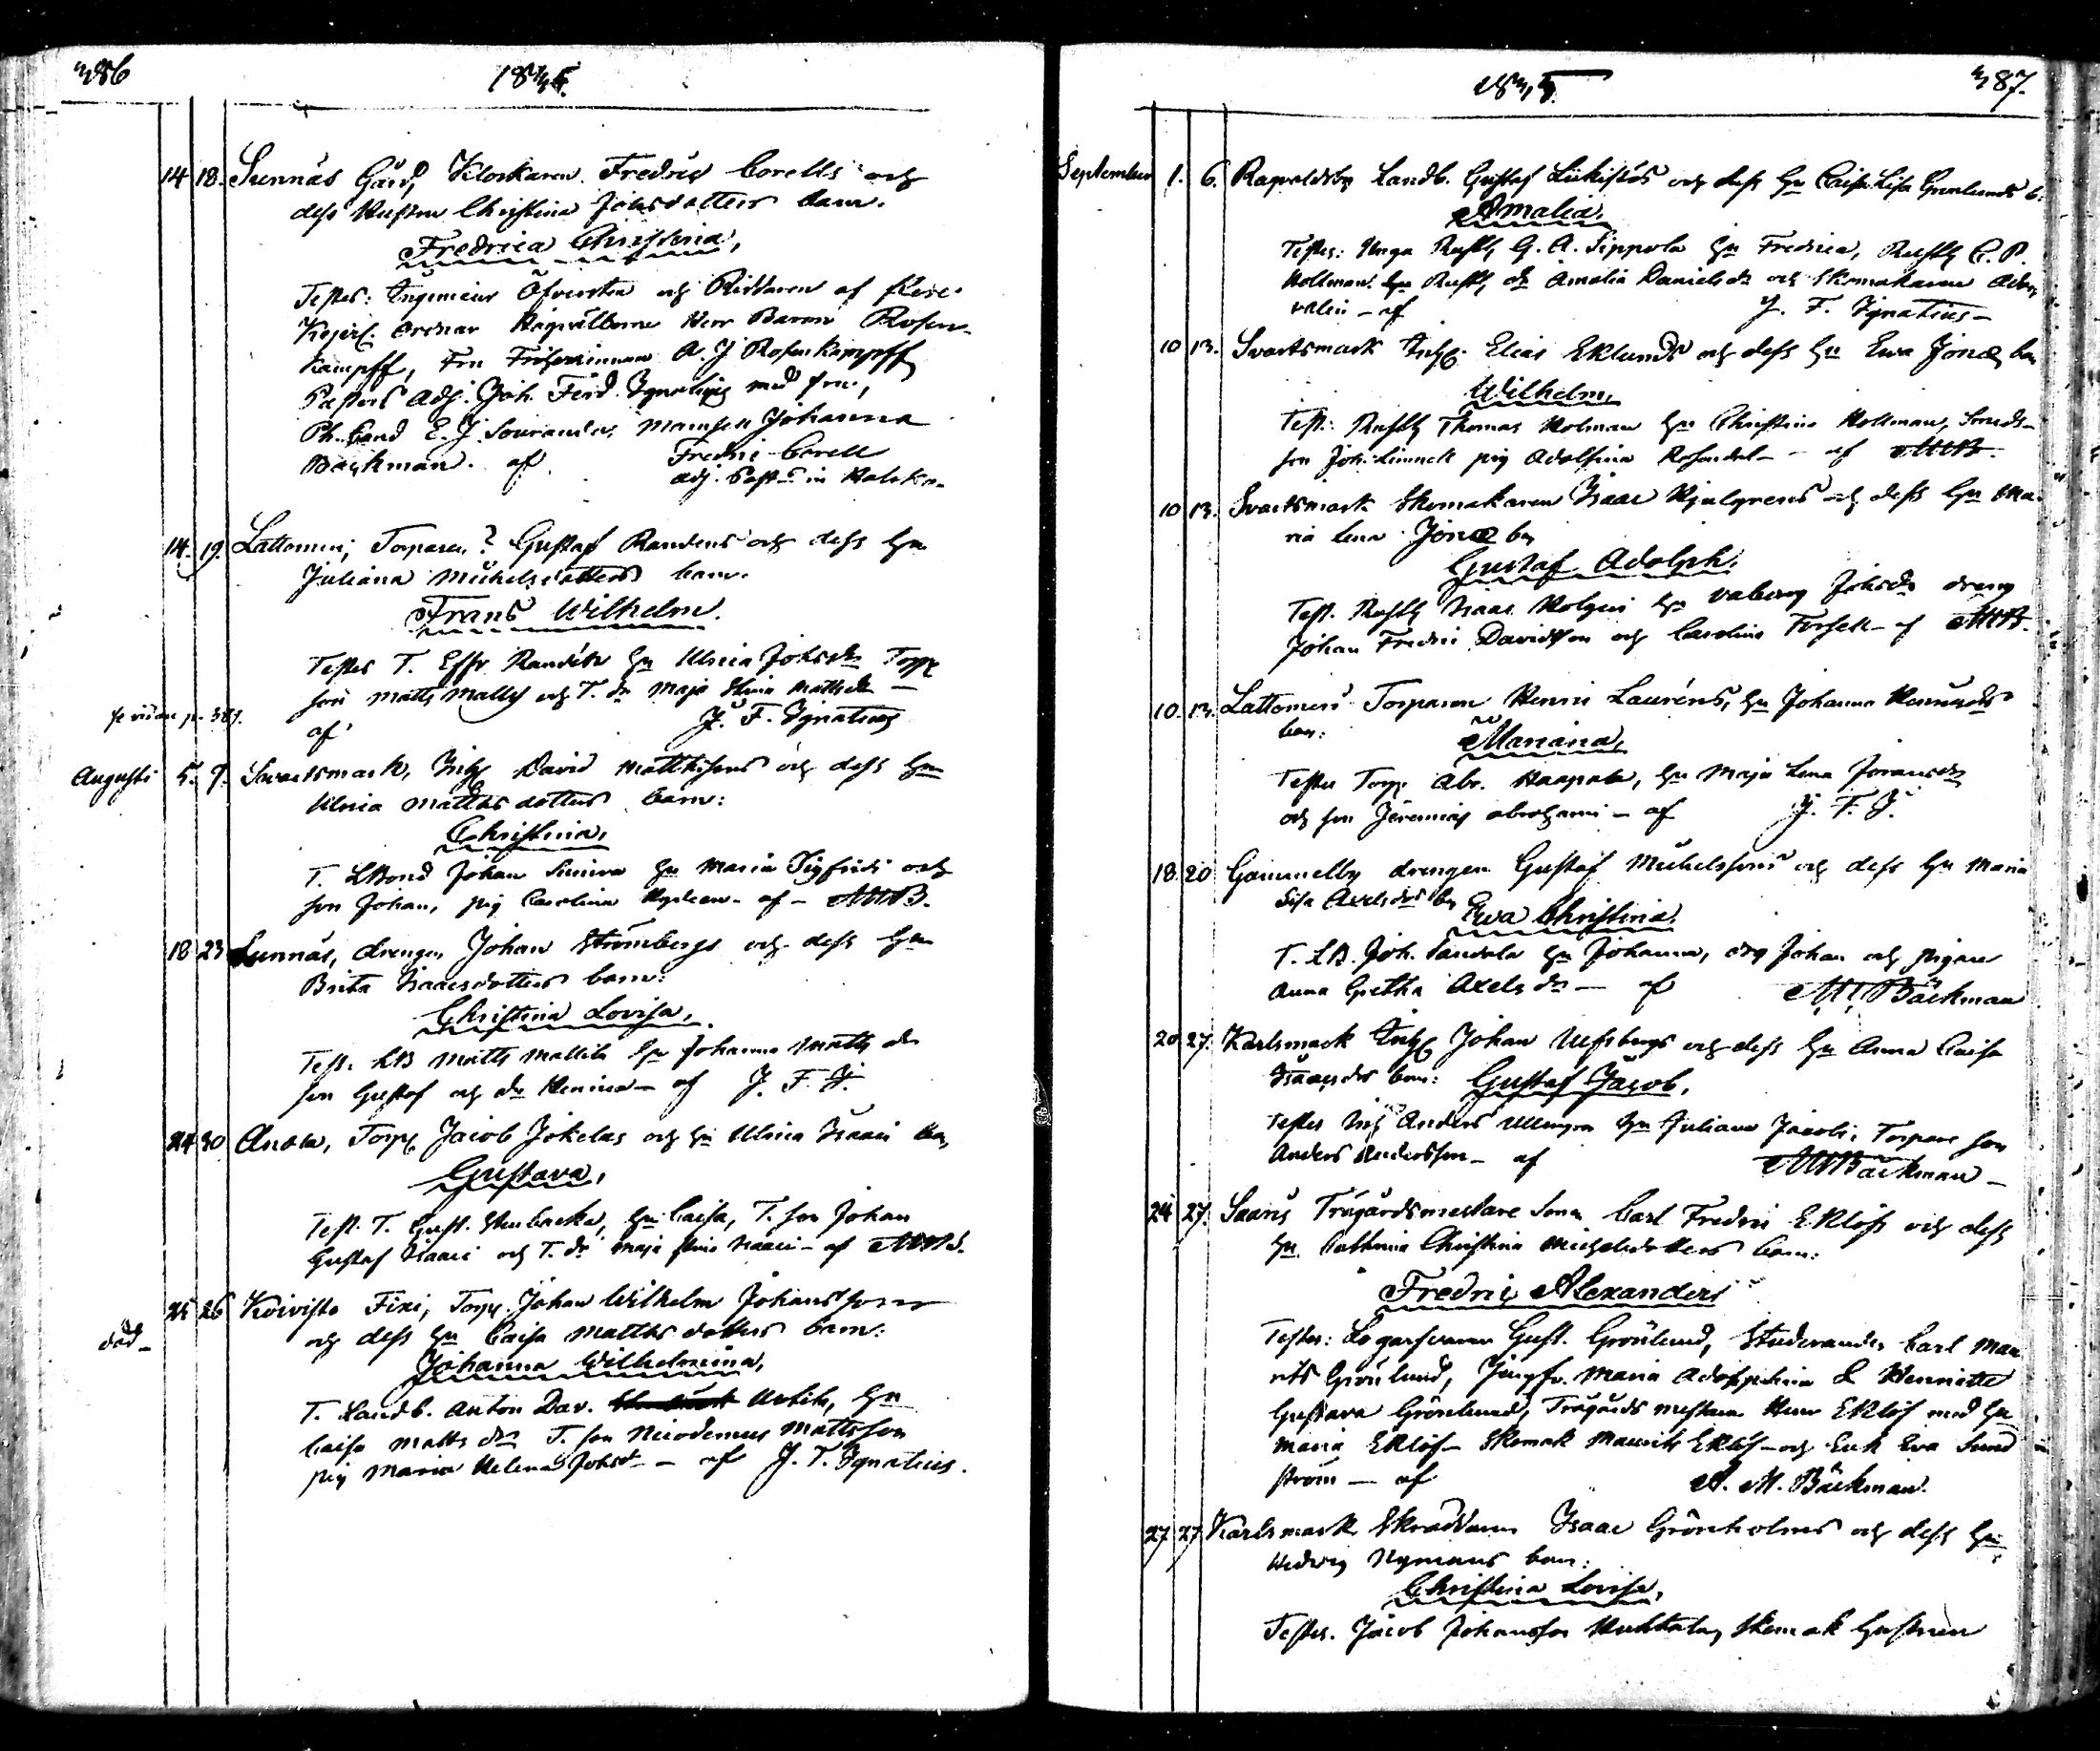 386
1835.
14 18. Sunnäs Gård, Klockaren Fredric Corells och
dess Hustru Christina Johsdotters barn.
Fredrica Christina,
Testes: Ingenieur Öfversten och Riddaren af flere
Kejserl. Ordnar Högvälborne Herr Baron Rosen-
kampff, Fru Friherrinnan A. J Rosenkampff
Pastors Adj. Joh. Ferd. Ignatius med fru,
Ph. Cand E. J. Sourander, Mamsell Johanna
Backman. af Fredric Corell
adj. Past. in
14. 19. Lattomeri, Torparen Gustaf Randens och dess Hu
Juliana Michelsdotters barn.
Frans Wilhelm.
Testes T. Efr Randén hu Ulrica Johsdr Torp
son Matts Matts och T. dr Maja Stina Mattsdr
af J. F. Ignatius
p. 387.
Augusti 5. 9. Svartsmark, Inh David Matthssons och dess Hu
Ulrica Matthsdotters barn:
Christina,
T. LBond Johan hu Maria Sigfrids och
son Johan, pig Carolina af A M B.
18 23 Sunnäs, drengen Johan Strömbergs och dess Hu
Brita Isaacsdotters barn:
Christina Lovisa,
Test. LB Matts Mattila hu Johanna Matts dr
son Gustaf och dr Henrica af J. F. J.
24 30 Anola, Torp Jacob Jokelas och Hu Ulrica Isaacs bn
Gustava,
Test. T. Gust. Stenbacka, hu Caisa, T. son Johan
Gustaf Isaacs och T. dr Maja Stina Isaacs af
25 26 Koivisto Fixi, Torp. Johan Wilhelm Johanssons
och dess Hu Caisa Matthsdotters barn:
död
Johanna Wilhelmina,
T. Landb. Anton Dav. hu
Caisa Matts dr T. son Nicodemus Mattsson
pig Maria Helena Johsdr af J. F. Ignatius.
1835.
387.
September 1. 6. Ragvaldsby Landb. Gustaf och dess Hu Caisa Lisa Grönlunds b.
Amalia,
Testes: Unga Rusth G. A. Sippola hu Fredrica, Rusth C. P.
Hollman, dr Amalia Daniels dr och Skomakaren
af J. F. Ignatius
10 13. Svartsmark Inh. Elias Eklunds och dess hu Ewa Jonæ bn
Wilhelm,
Test: Rusth Thomas Holman hu Christina Hollman, Smeds-
son Joh. pig Adolfina af AMB.
10 13. Svartsmark Skomakaren Isaac Hjulgrens och dess Hu Ma-
ria Lena Jonæ bn
Gustaf Adolph.
Test. Rusth Isaac hu Valborg Johsdr dreng
Johan Fredric Davidsson och Carolina Forsell af AMB.
10. 13. Lattomeri Torparen Henric Lauréns, hu Johanna
barn: Mariana,
Testes Torp Abr. Haapala, hu Maja Lena
och son Jeremias Abrahams af J. F. J.
18 20 Gammelby drengen Gustaf Michelssons och dess Hu Maria
Lisa Axelsdrs bn Ewa Christina.
T. LB. Joh. Sandala hu Johanna, drg Johan och pigan
Anna Gretha Axels dr af A M Bäckman
20 27. Karlsmark Inh Johan och dess Hu Anna Caisa
Isaacsdrs barn: Gustaf Jacob.
Testes Inh Anders hu Juliana Jacobs, Torpare son
Anders Andersson af AMBäckman
24 27. Saaris Trägårdsmestare Sonen Carl Fredric Eklöfs och dess
Hu Cathrina Christina Michelsdotters barn:
Fredric Alexander
Testes: Gust. Grönlund, Studeranden Carl Mau
rits Grönlund, Jungfr. Maria Adolphina & Henriette
Gustava Grönlund, Trägårds mestaren Herr Eklöf med hu
Maria Eklöf Skomak Maurits Eklöf och Enk Eva Sund
ström af A. M. Bäckman.
27 27 Karlsmark Skräddaren Isaac Grönholms och dess Hu
Hedvig Nymans barn:
Christina Lovisa,
Testes. Jacob Johansson Skomak